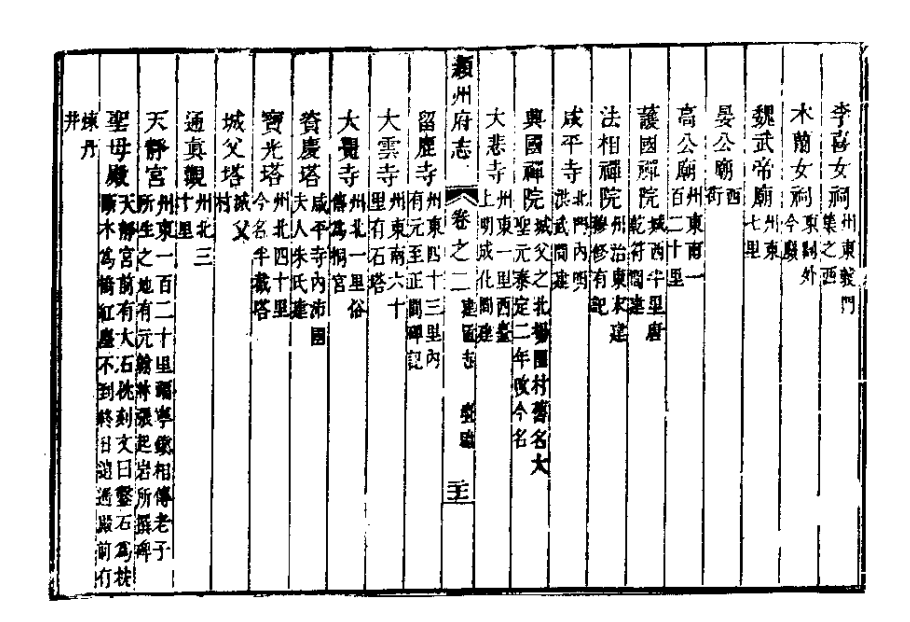 李喜女祠州東義門集之西
木蘭女祠東關外今廢
魏武帝廟州東七里
晏公廟西街
高公廟州東南一百二十里
護國禪院城西半里唐乾符間建
法相禪院州治東宋建修有記
咸平寺北門內明洪武間建
興國禪院城父之北楊園村舊名大聖元泰定二年改今名
大悲寺州東一里西臺上明成化間建
潁州府志 卷之二 建置志 壇廟
留鹿寺州東四十三里內有元至正間碑記
大雲寺州東南六十里有石塔
大覺寺州北一里俗傳為桐宮
資慶塔咸平寺內沛國夫人朱氏建
寶光塔州北四十里今名半截塔
城父塔城父村
通真觀州北三十里
天靜宮州東一百二十里福寧鎮相傳老子所生之地有元翰林張起岩所撰碑
聖母殿天靜宮前有大石枕刻文曰鑿石為枕斷木為橋紅塵不到終日逍遙殿前有
煉丹井